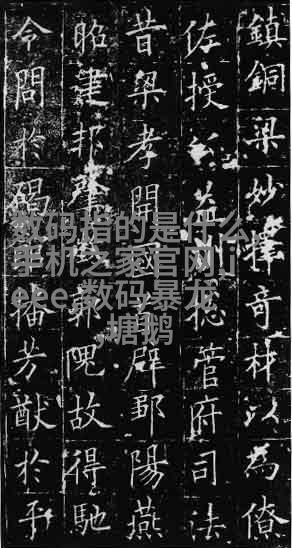 鎮銅梁妙擇奇材以為僚
佐授益總管府司法
昔梁孝開國首辟鄒陽燕
昭建邦肇郭隗故得馳
令問於碣播芳猷於平
数码指的是什么,
手机之家官网,i
eee,数码暴龙
,塘鹅